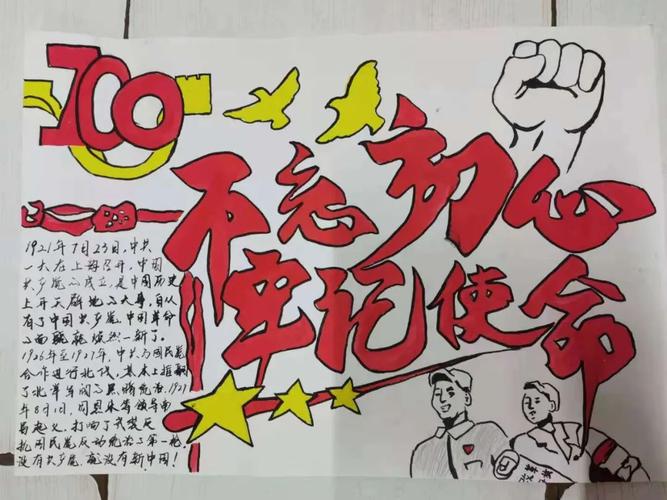 100
不忘初心
牢记使命
1921年7月23日,中共
一大在上海召开,中国
共产党的成立,是中国历史
上开天辟地的大事,自从
有了中国共产党,中国革命
的面貌就焕然一新了。
1926年至1927年,中共与国民党
合作进行北伐,基本上推翻
了北洋军阀的黑暗统治。1927
年8月1日,周恩来等领导南
昌起义,打响了武装反
抗国民党反动统治的第一枪
没有共产党,就没有新中国!